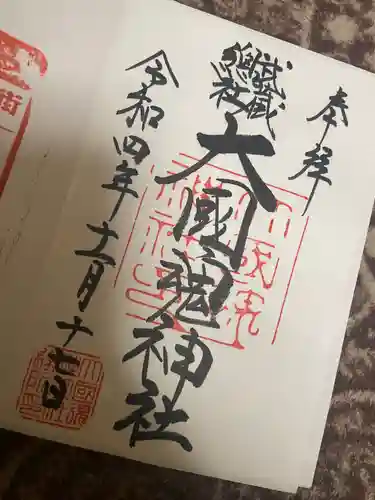 奉拝
武蔵
総社
大國魂神社
令和四年十一月十七日